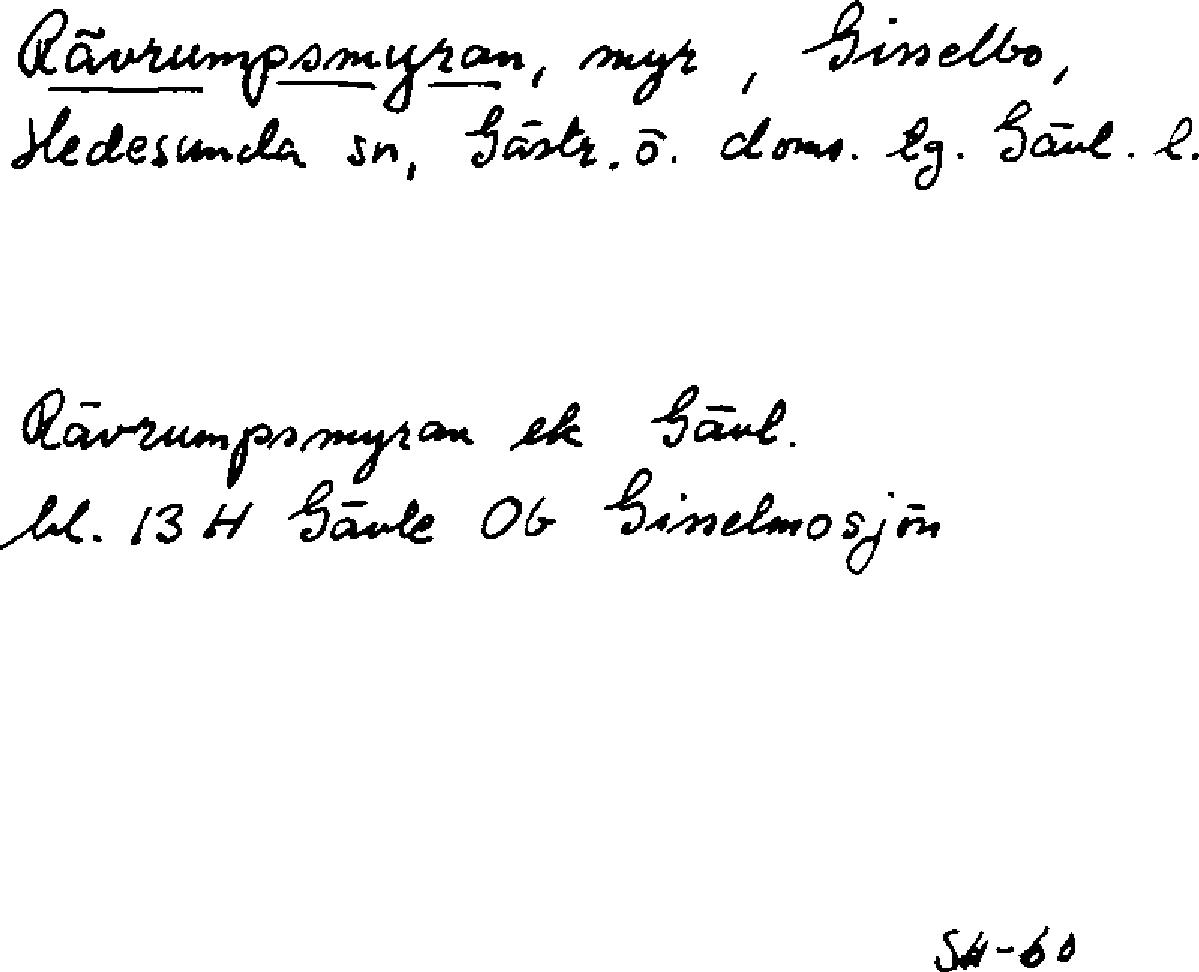 Rävrumpsmyran, myr, Gisselbo,
Hedesunda sn, Gästr. ö. doms. lg. Gävl. l.
Rävrumpsmyran ek Gävl.
bl. 13 H Gävle 0b Gisselmosjön
SH-60